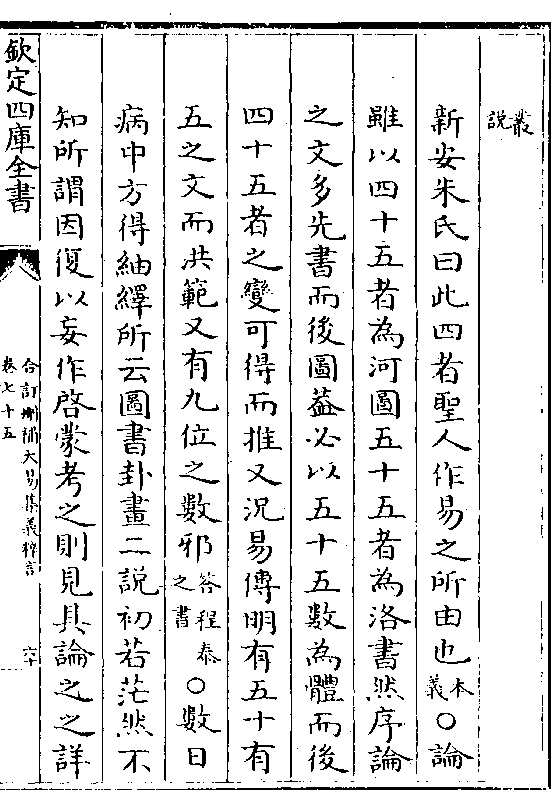 叢說
新安朱氏曰此四者聖人作易之所由也本義〇論
雖以四十五者為河圖五十五者為洛書然序論
之文多先書而後圖葢必以五十五數為體而後
四十五者之變可得而推又況易傳明有五十有
五之文而洪範又有九位之數邪答程泰之書〇數日
病中方得紬繹所云圖書卦畫二說初若茫然不
知所謂因復以妄作啓蒙考之則見其論之之詳
欽定四庫全書
合訂刪補大易集義粹言
卷七十五
六十